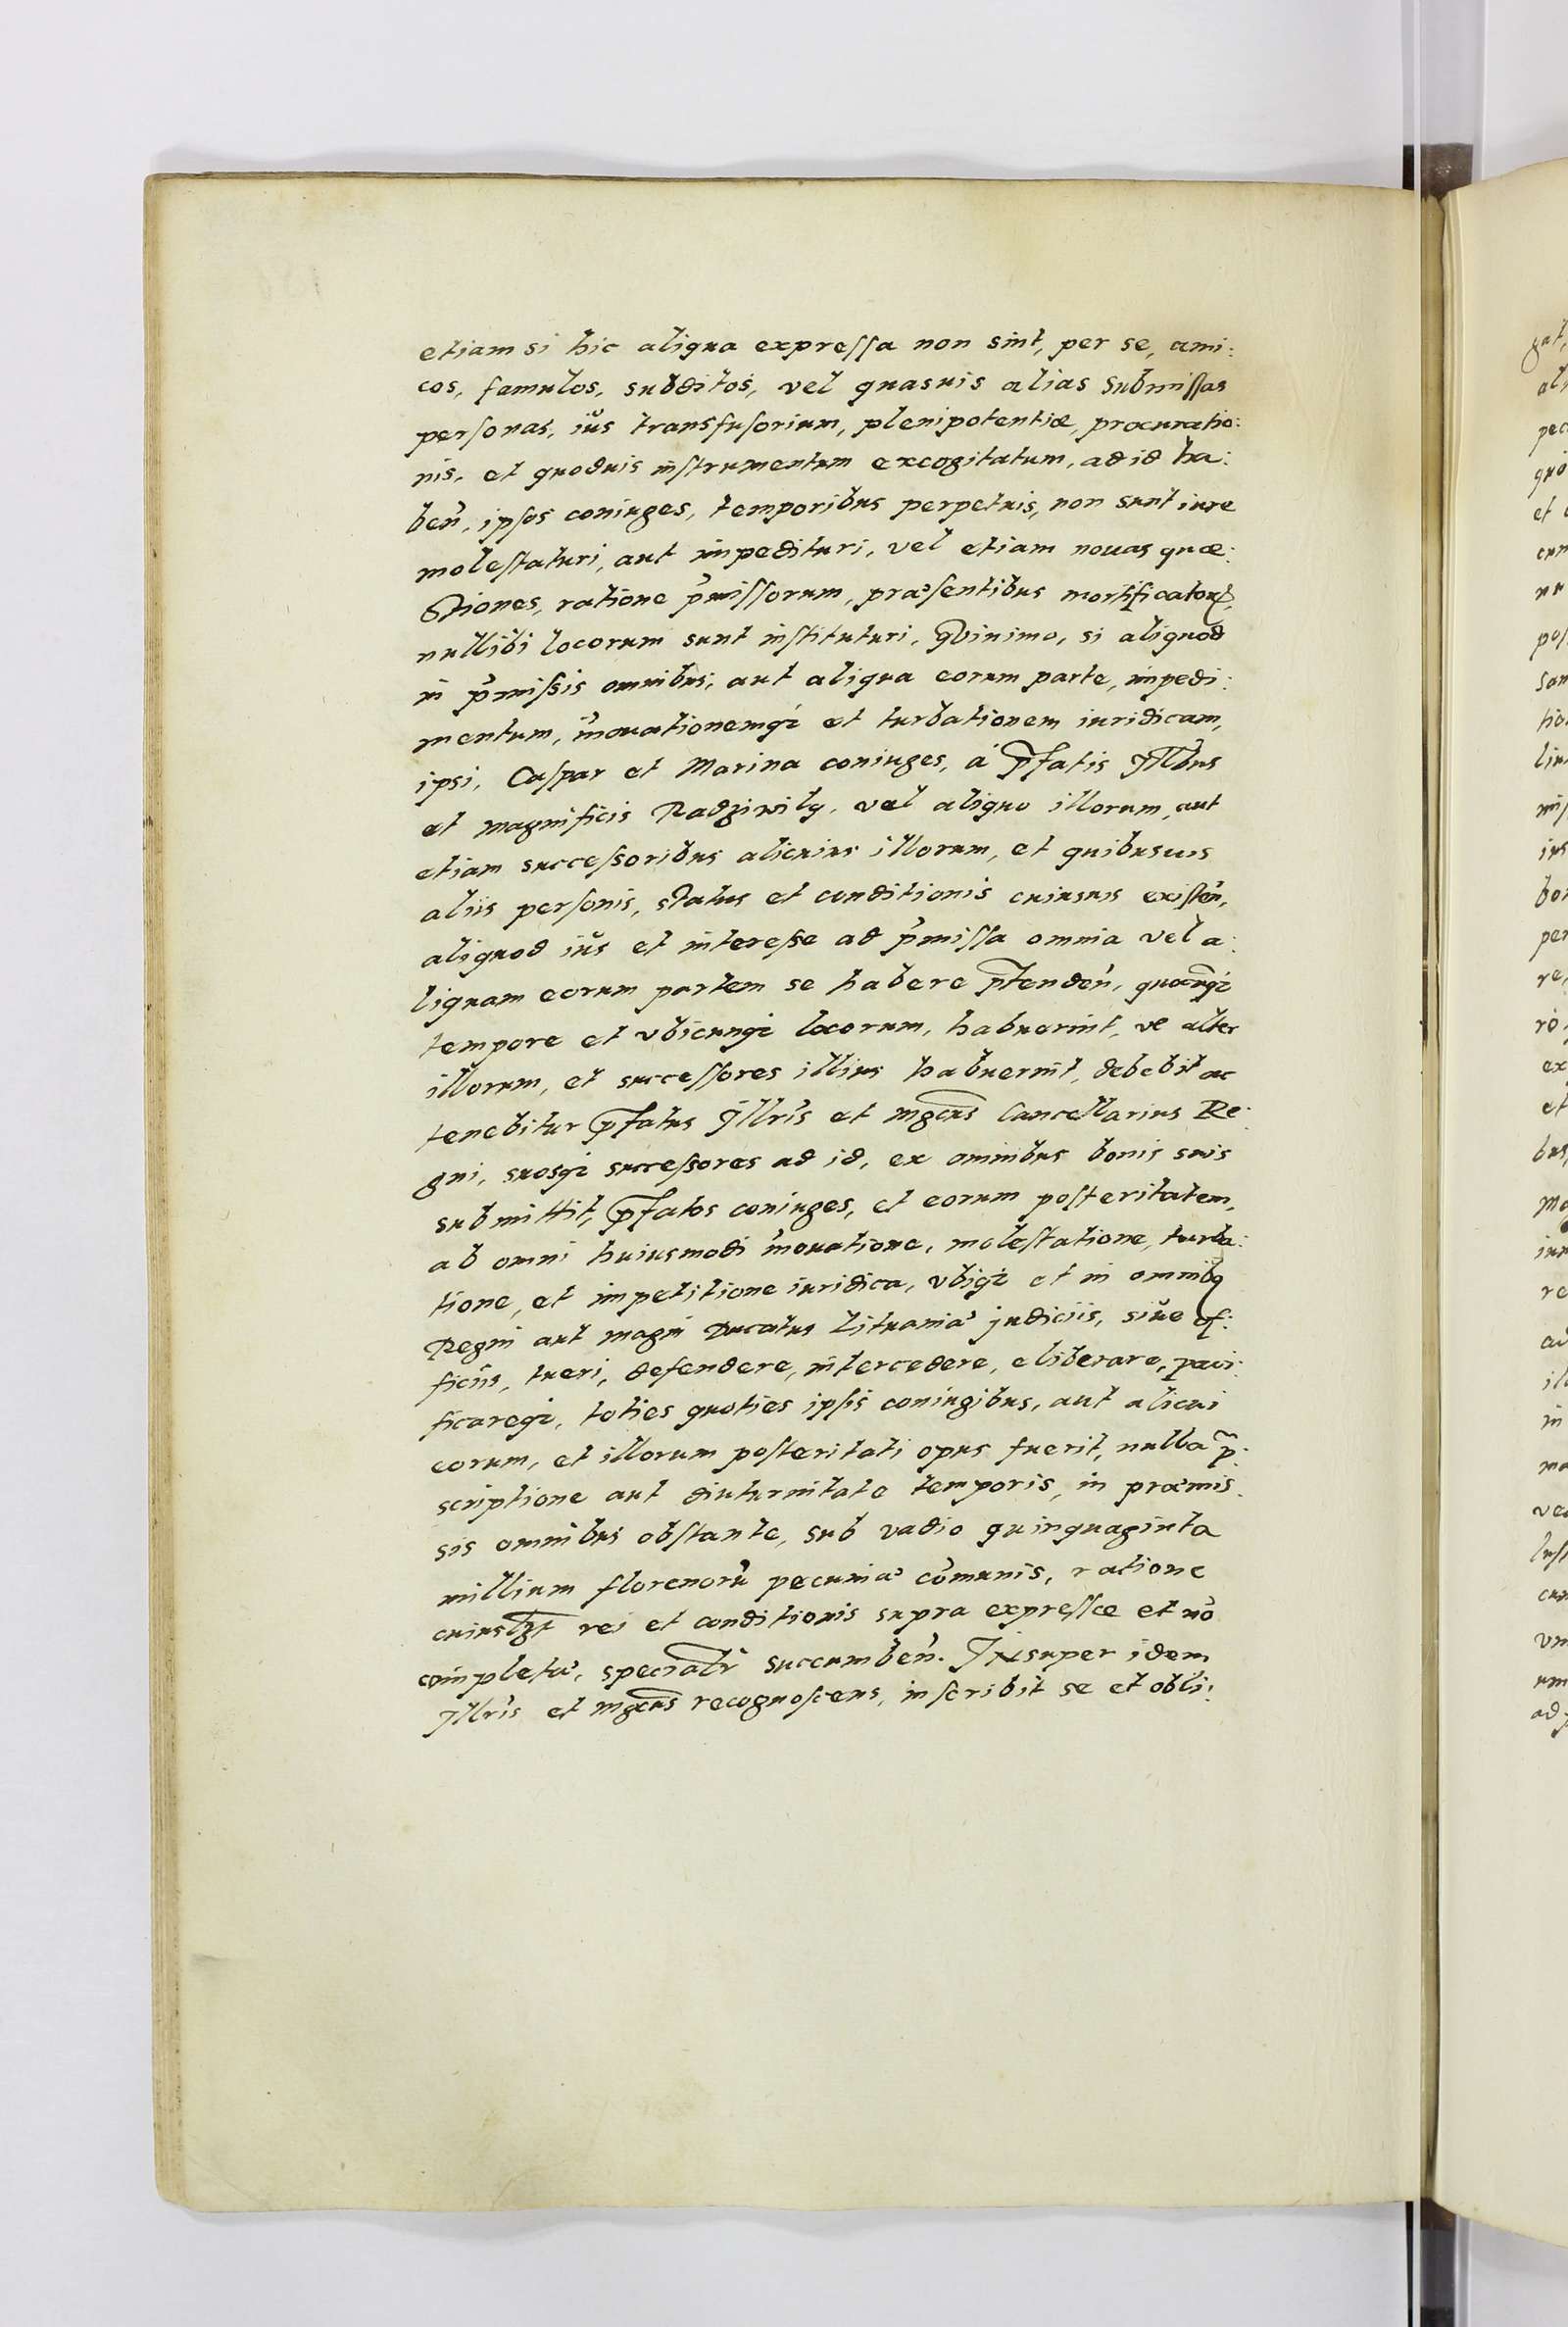 etiam si hic aliqua expreſſa non sint, per se, ami:
cos, famulos, subditos, vel quasuis alias submiſſas
perſonas, iŭs transfuſorium, plenipotentiæ, procuratio:
nis, et quoduis inſtrumentum excogitatum, ad id ha:
beñ, ipſos coniuges, temporibus perpetuis, non sunt iure
moleſtaturi, aut impedituri, vel etiam nouas quæ:
Stiones, ratione p̃miſſorum, præſentibus mortificatoꝝ,
nullibi locorum sunt inſtituturi, quinimo, si aliquod
in p̃miſsis omnibus, aut aliqua eorum parte, impedi:
mentum, ĩnouationemqꝫ et turbationem iuridicam,
ipsi, Caſpar et Marina coniuges, á p̃fatis Jllr̃bus
et magnificis Radziwily, vel aliquo illorum, aut
etiam succeſsoribus alicuius illorum, et quibusuis
aliis perſonis, status et conditionis cuiusuis exiſteñ,
aliquod iŭs et intereſse ad p̃miſſa omnia vel a:
liquam eorum partem se habere p̃tendeñ, quocũqꝫ
tempore et vbicunqꝫ locorum, habuerint, ve alter
illorum, et succeſſores illius habuerint, debebit ac
tenebitur p̃fatus Jllr̃is et mgcũs Cancellarius Re:
gni, suosqꝫ succeſsores ad id, ex omnibus bonis suis
submittit, p̃fatos coniuges, et eorum poſteritatem,
ab omni huiusmodi ĩnouatione, moleſtatione, turba:
tione, et impetitione iuridica, vbiqꝫ et in omnibꝯ
Regni aut magni Ducatus Lituaniæ judiciis, siŭe of:
ficiis, tueri, defendere, intercedere, eliberare, paci:
ficareqꝫ, toties quoties ipſis coniugibus, aut alicui
eorum, et illorum poſteritati opus fuerit, nulla p̃:
scriptione aut diuturnitate temporis, in præmis:
sis omnibus obſtante, sub vadio quinquaginta
millium florenorũ pecuniæ cõmunis, ratione
cuiuslꝫt rei et conditionis supra expreſſæ et nõ
completæ, specialr̃ succumbeñ. Jnsuper idem
Jllr̃is et mgcũs recognoſcens, inſcribit se et obli: